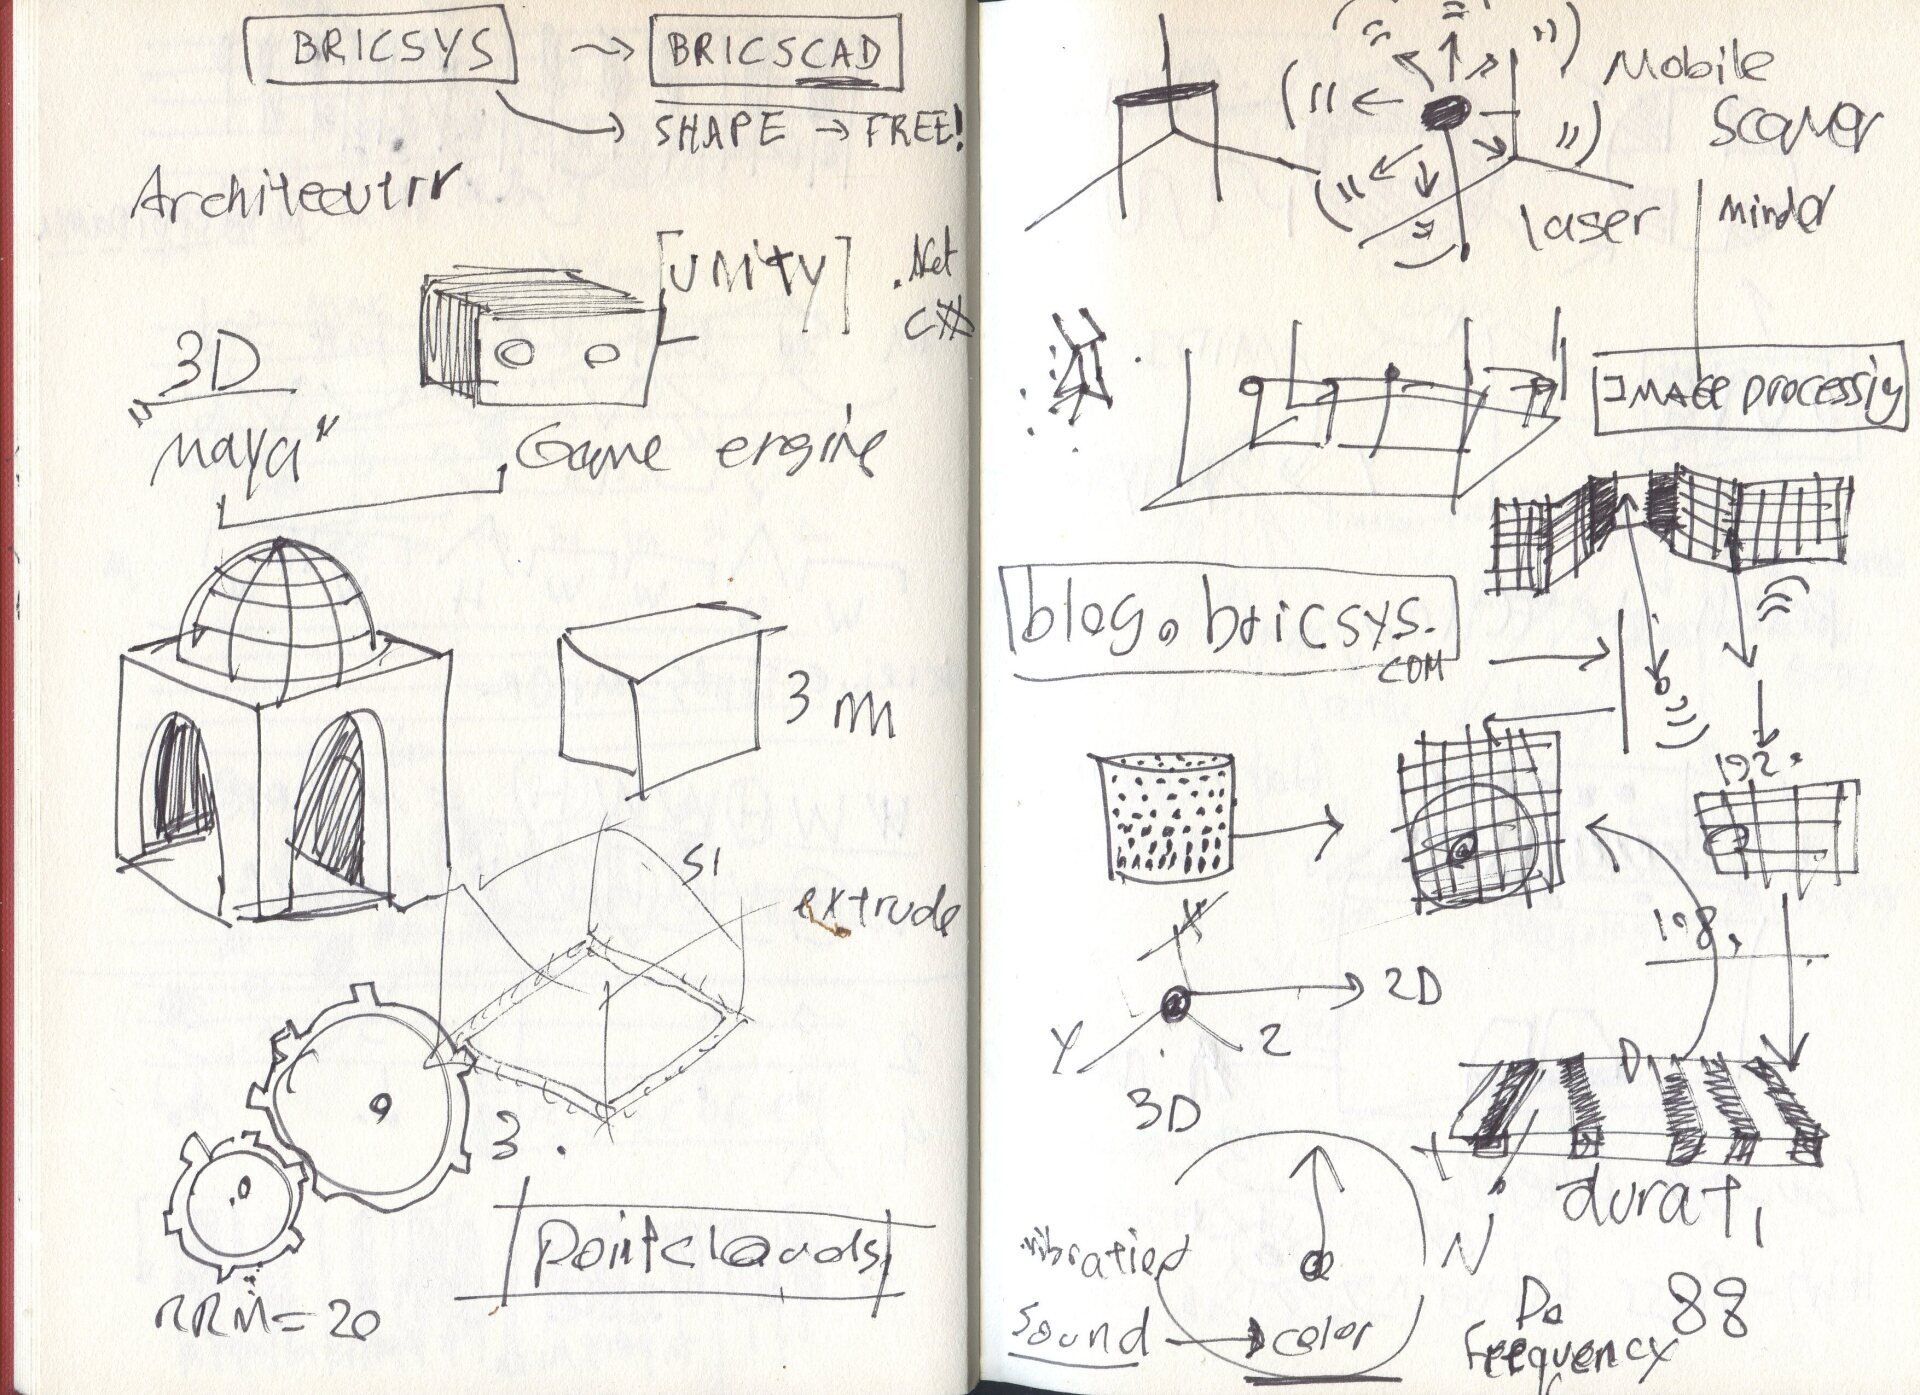 BRICSYS → BRICSCAD
SHAPE → FREE!
Architecutrr
[UNITY]
.Net
C#
3D
"Maya"
Game engine
3 m
S1
extrude
3.
Pointclouds
RRM = 20
Mobile
Scaner
laser
minder
IMAGE processiy
blog.bricsys.
COM
192.
198.
X
2D
Y
Z
3D
D
durat,
N
vibratied
Sound → color
Do
Freequency
88